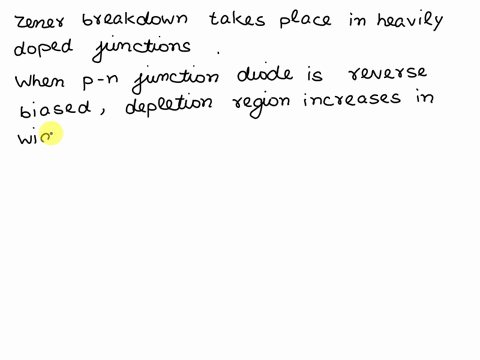 zener breakdown takes place in heavily
doped junctions .
When p-n junction diode is reverse
biased, depletion region increases in